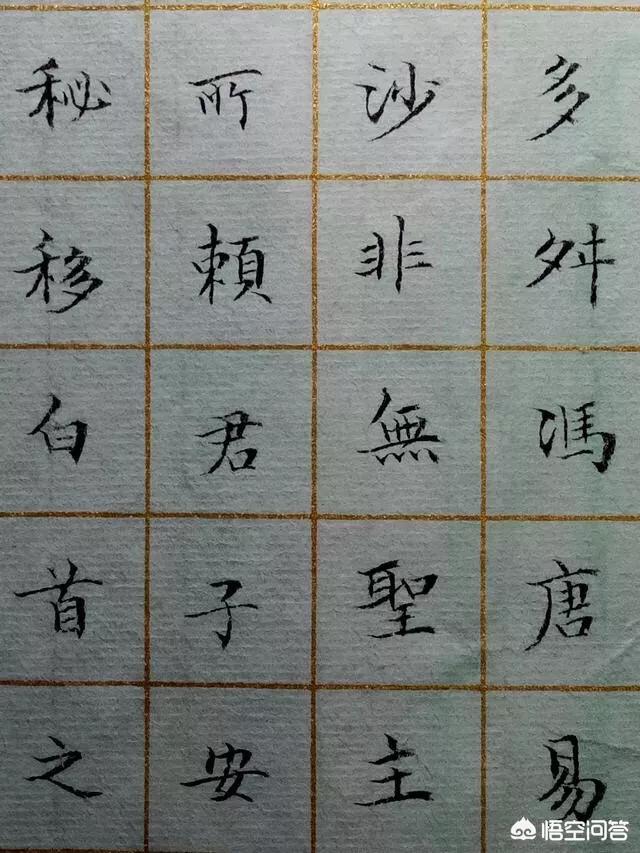 多舛馮唐易
沙非無聖主
所頼君子安
秘移白首之
悟空问答